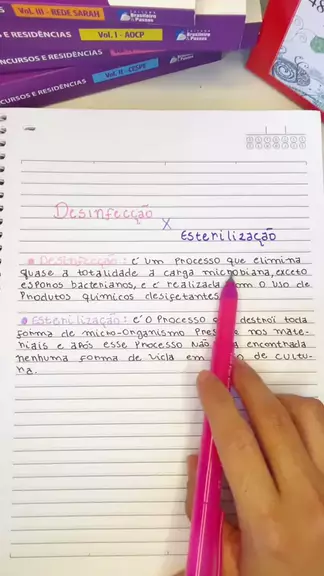 Vol. III - REDE SARAH
Editora Brasileiro & Passos
RESIDÊNCIAS
Vol. I - AOCP
Editora Brasileiro & Passos
CONCURSOS E RESIDÊNCIAS
Vol. II -
Desinfecção
X
Esterilização
Desinfecção: é um processo que elimina
quase a totalidade a carga microbiana, exceto
esporos bacterianos, e é realizada com o uso de
Produtos químicos desifetantes
Esterilização: é o Processo destrói toda
forma de micro-organismo nos mate-
riais e após esse Processo não encontrada
nenhuma forma de vida em de cultu-
ra.